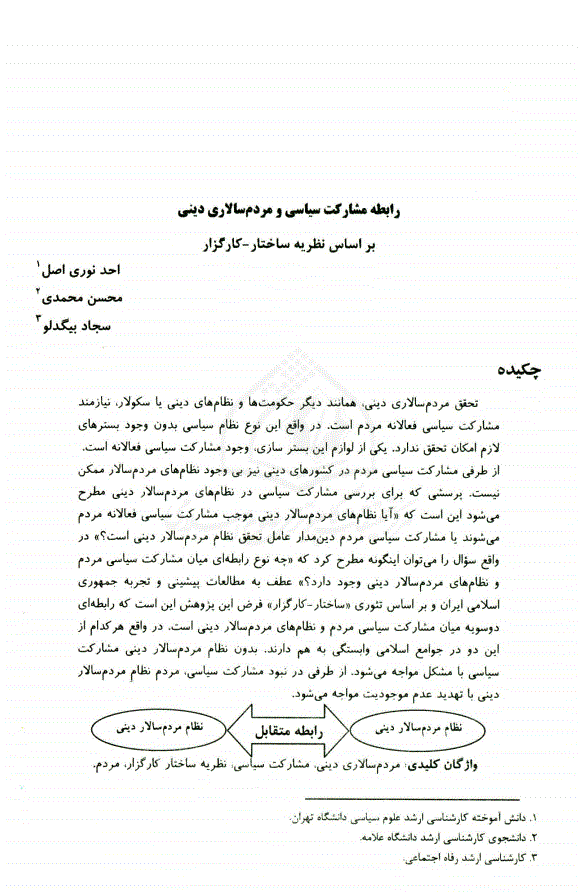 رابطه مشارکت سیاسی و مردم‌سالاری دینی
بر اساس نظریه ساختار-کارگزار
احد نوری اصل۱
محسن محمدی۲
سجاد بیگدلو۳
چکیده
تحقق مردم‌سالاری دینی، همانند دیگر حکومت‌ها و نظام‌های دینی یا سکولار، نیازمند
مشارکت سیاسی فعالانه مردم است. در واقع این نوع نظام سیاسی بدون وجود بسترهای
لازم امکان تحقق ندارد. یکی از لوازم این بستر سازی، وجود مشارکت سیاسی فعالانه است.
از طرفی مشارکت سیاسی مردم در کشورهای دینی نیز بی وجود نظام‌های مردم‌سالار ممکن
نیست. پرسشی که برای بررسی مشارکت سیاسی در نظام‌های مردم‌سالار دینی مطرح
می‌شود این است که «آیا نظام‌های مردم‌سالار دینی موجب مشارکت سیاسی فعالانه مردم
می‌شوند یا مشارکت سیاسی مردم دین‌مدار عامل تحقق نظام مردم‌سالار دینی است؟» در
واقع سؤال را می‌توان اینگونه مطرح کرد که «چه نوع رابطه‌ای میان مشارکت سیاسی مردم
و نظام‌های مردم‌سالار دینی وجود دارد؟» عطف به مطالعات پیشینی و تجربه جمهوری
اسلامی ایران و بر اساس تئوری «ساختار-کارگزار» فرض این پژوهش این است که رابطه‌ای
دوسویه میان مشارکت سیاسی مردم و نظام‌های مردم‌سالار دینی است. در واقع هرکدام از
این دو در جوامع اسلامی وابستگی به هم دارند. بدون نظام مردم‌سالار دینی مشارکت
سیاسی با مشکل مواجه می‌شود. از طرفی در نبود مشارکت سیاسی، مردم نظام مردم‌سالار
دینی با تهدید عدم موجودیت مواجه می‌شود.
نظام مردم‌سالار دینی
رابطه متقابل
نظام مردم‌سالار دینی
واژگان کلیدی: مردم‌سالاری دینی، مشارکت سیاسی، نظریه ساختار کارگزار، مردم.
۱. دانش آموخته کارشناسی ارشد علوم سیاسی دانشگاه تهران.
۲. دانشجوی کارشناسی ارشد دانشگاه علامه.
۳. کارشناسی ارشد رفاه اجتماعی.